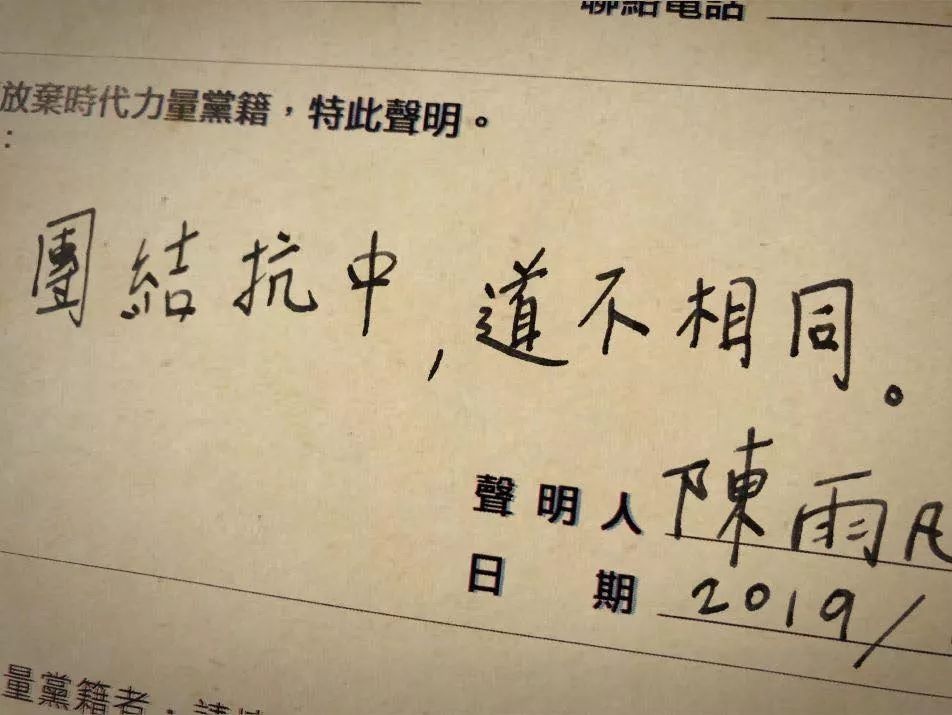 聯絡電話
放棄時代力量黨籍，特此聲明。
：
團結抗中，道不相同。
聲明人 陳雨凡
日期 2019/
量黨籍者，請